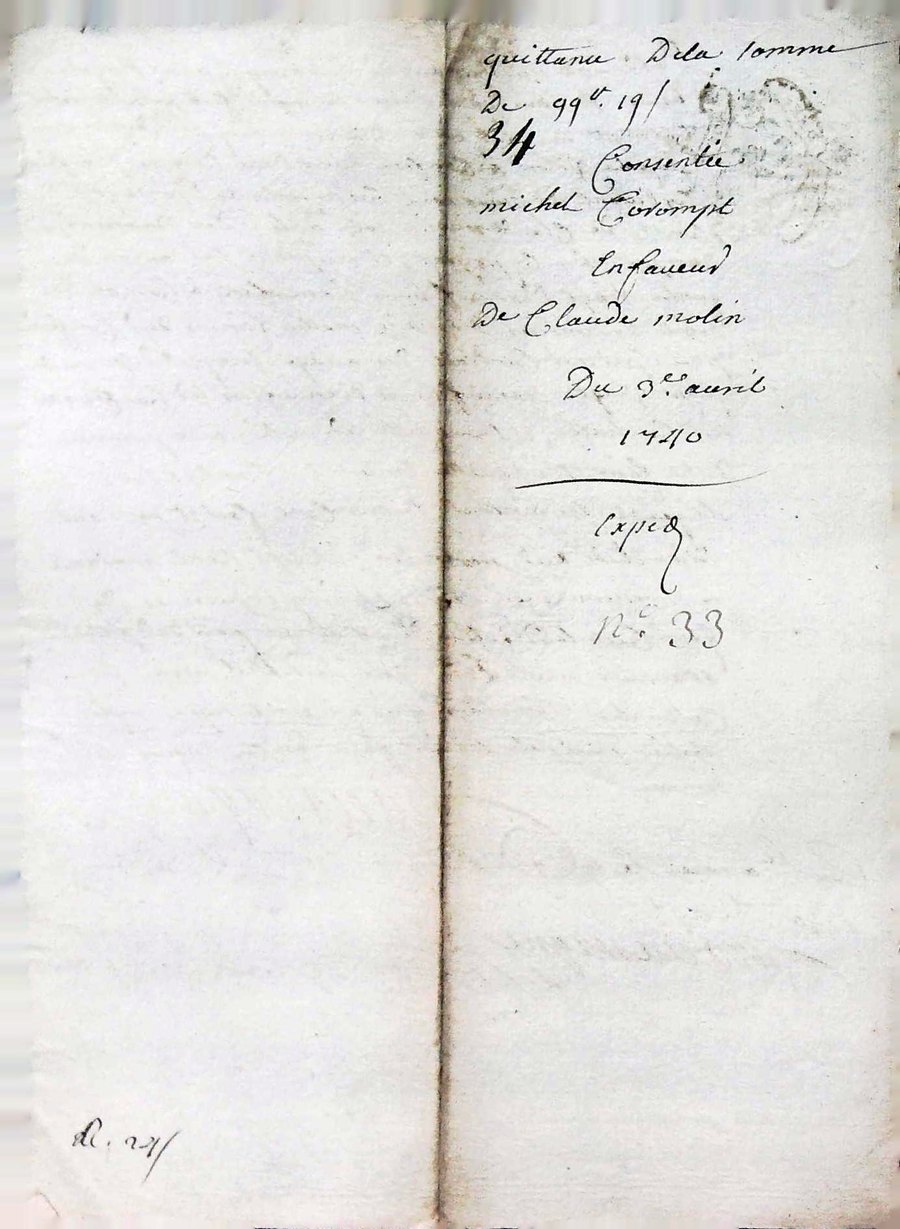 quittance Dela somme
De 99ᵗᵗ. 19ſ
34
Consentie
michel Corompt
En faveur
De Claude molin
Du 3ᵉ. auril
1740
Exped
N°. 33
R. 24ſ